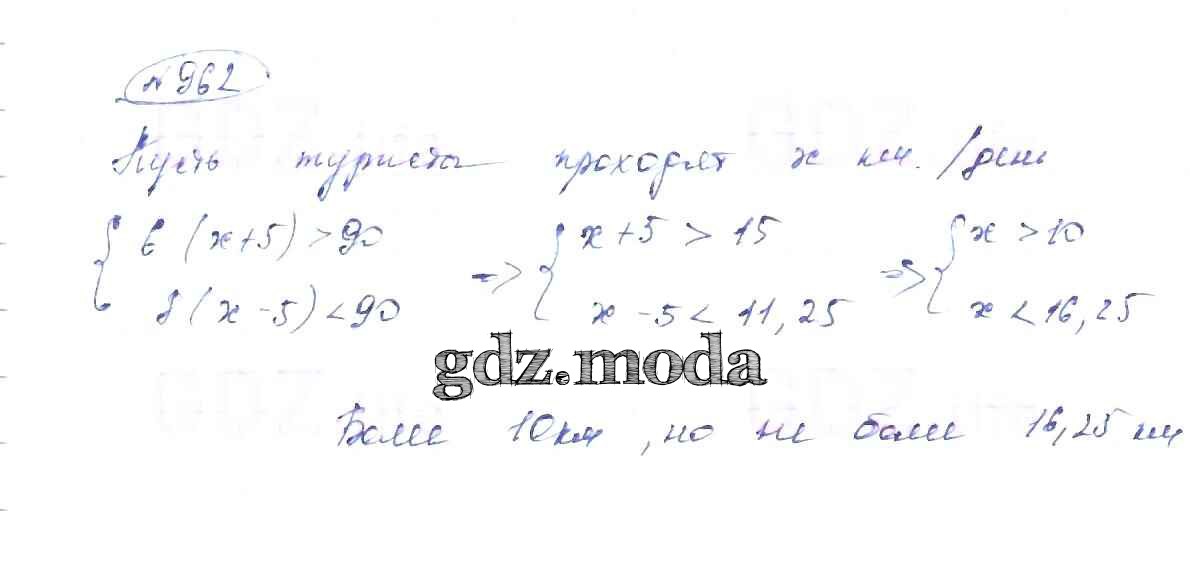 №962
Пусть туристы проходят x км. /день
{ 6 (x+5) > 90 => { x+5 > 15 => { x > 10
8 (x-5) < 90 x-5 < 11,25 x < 16,25
gdz.moda
Боле 10км, но не боле 16,25 км